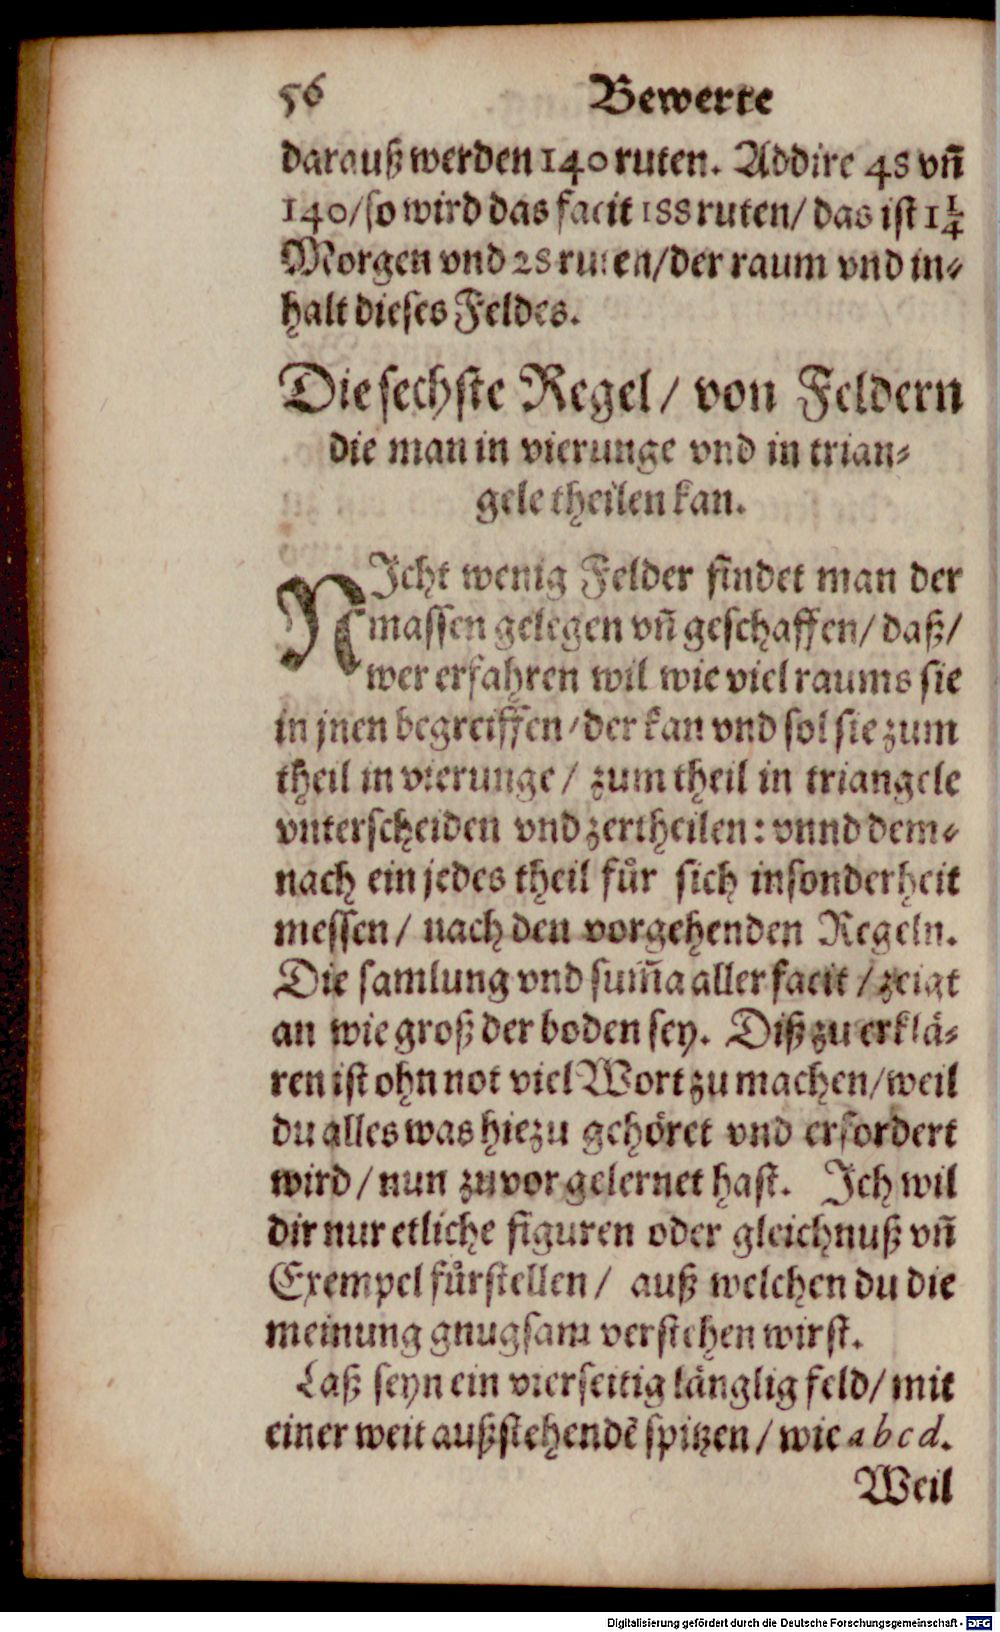 56 Bewerte
darauß werden 140 ruten. Addire 48 vñ
140/ so wird das facit 188 ruten/ das ist 1¼
Morgen vnd 28 ruten/ der raum vnd in⸗
halt dieses Feldes.
Die sechste Regel/ von Feldern
die man in vierunge vnd in trian⸗
gele theilen kan.
NIcht wenig Felder findet man der
massen gelegen vñ geschaffen/ daß/
wer erfahren wil wie viel raums sie
in jnen begreiffen/ der kan vnd sol sie zum
theil in vierunge/ zum theil in triangele
vnterscheiden vnd zertheilen: vnnd dem⸗
nach ein jedes theil fuͤr sich insonderheit
messen/ nach den vorgehenden Regeln.
Die samlung vnd sum̃a aller facit/ zeigt
an wie groß der boden sey. Diß zu erklä⸗
ren ist ohn not viel Wort zu machen/ weil
du alles was hiezu gehöret vnd erfordert
wird/ nun zuvor gelernet hast. Ich wil
dir nur etliche figuren oder gleichnuß vñ
Exempel fuͤrstellen/ auß welchen du die
meinung gnugsam verstehen wirst.
Laß seyn ein vierseitig länglig feld/ mit
einer weit außstehendẽ spitzen/ wie a b c d.
Weil
Digitalisierung gefördert durch die Deutsche Forschungsgemeinschaft - DFG